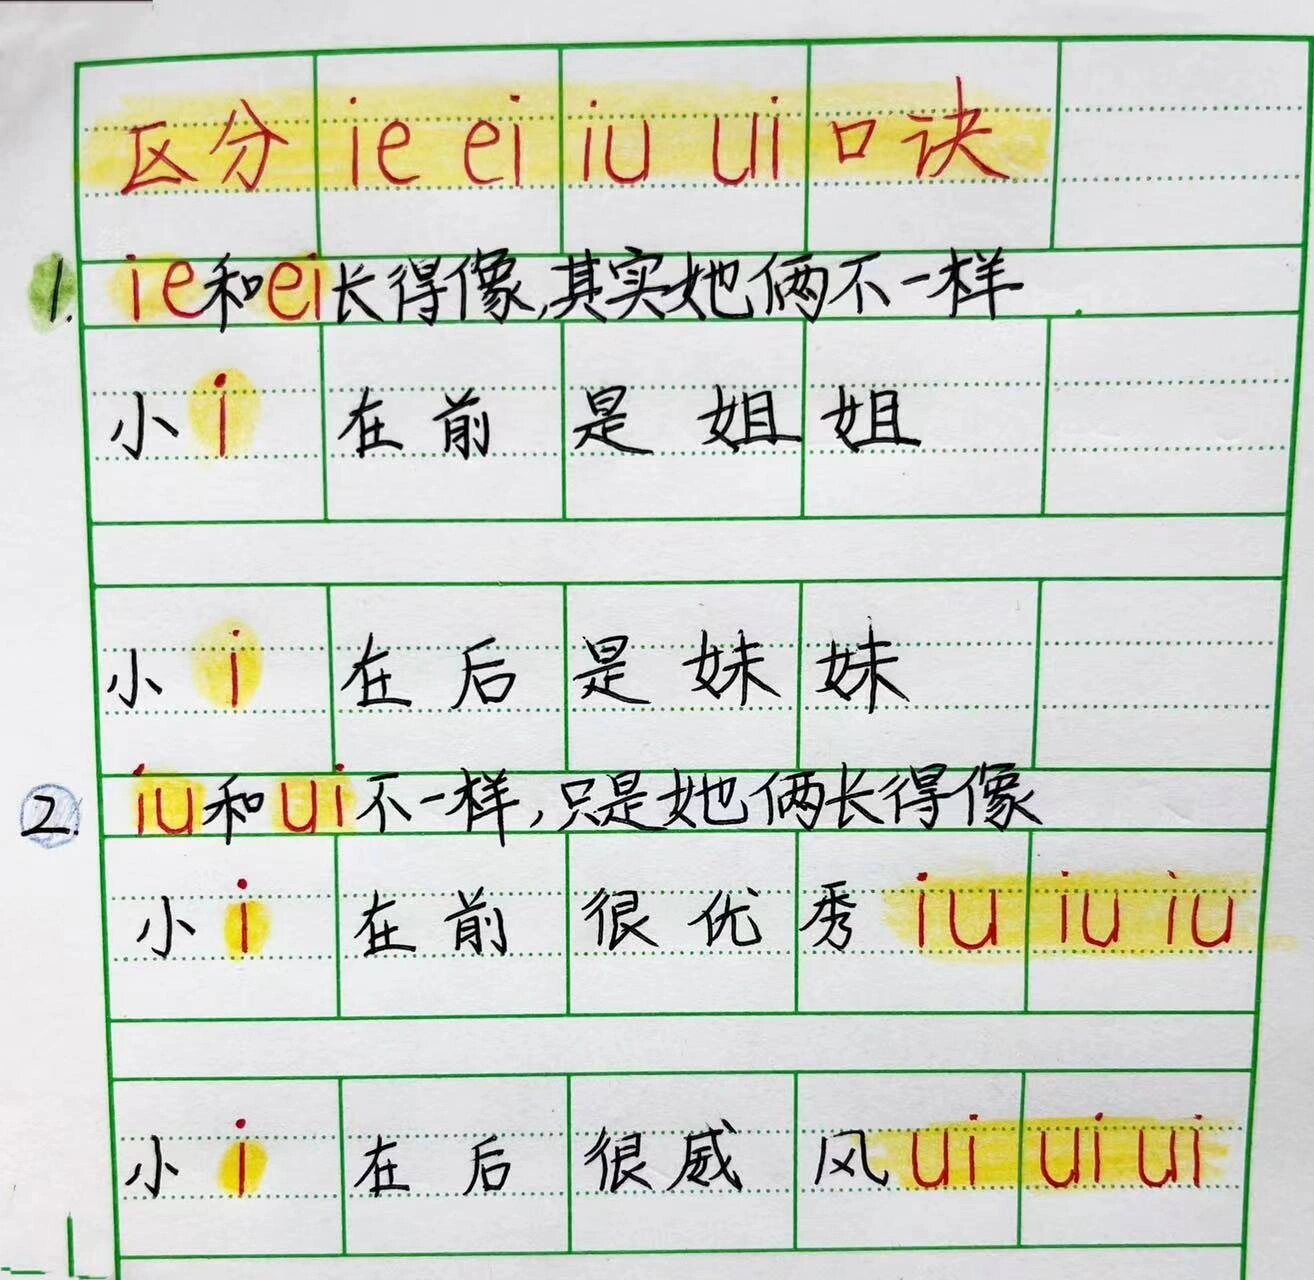 区分 ie ei iu ui 口诀
1. ie和ei长得像,其实她俩不一样
小 i 在前是姐姐
小 i 在后是妹妹
2. iu和ui不一样,只是她俩长得像
小 i 在前很优秀 iu iu iu
小 i 在后很威风 ui ui ui